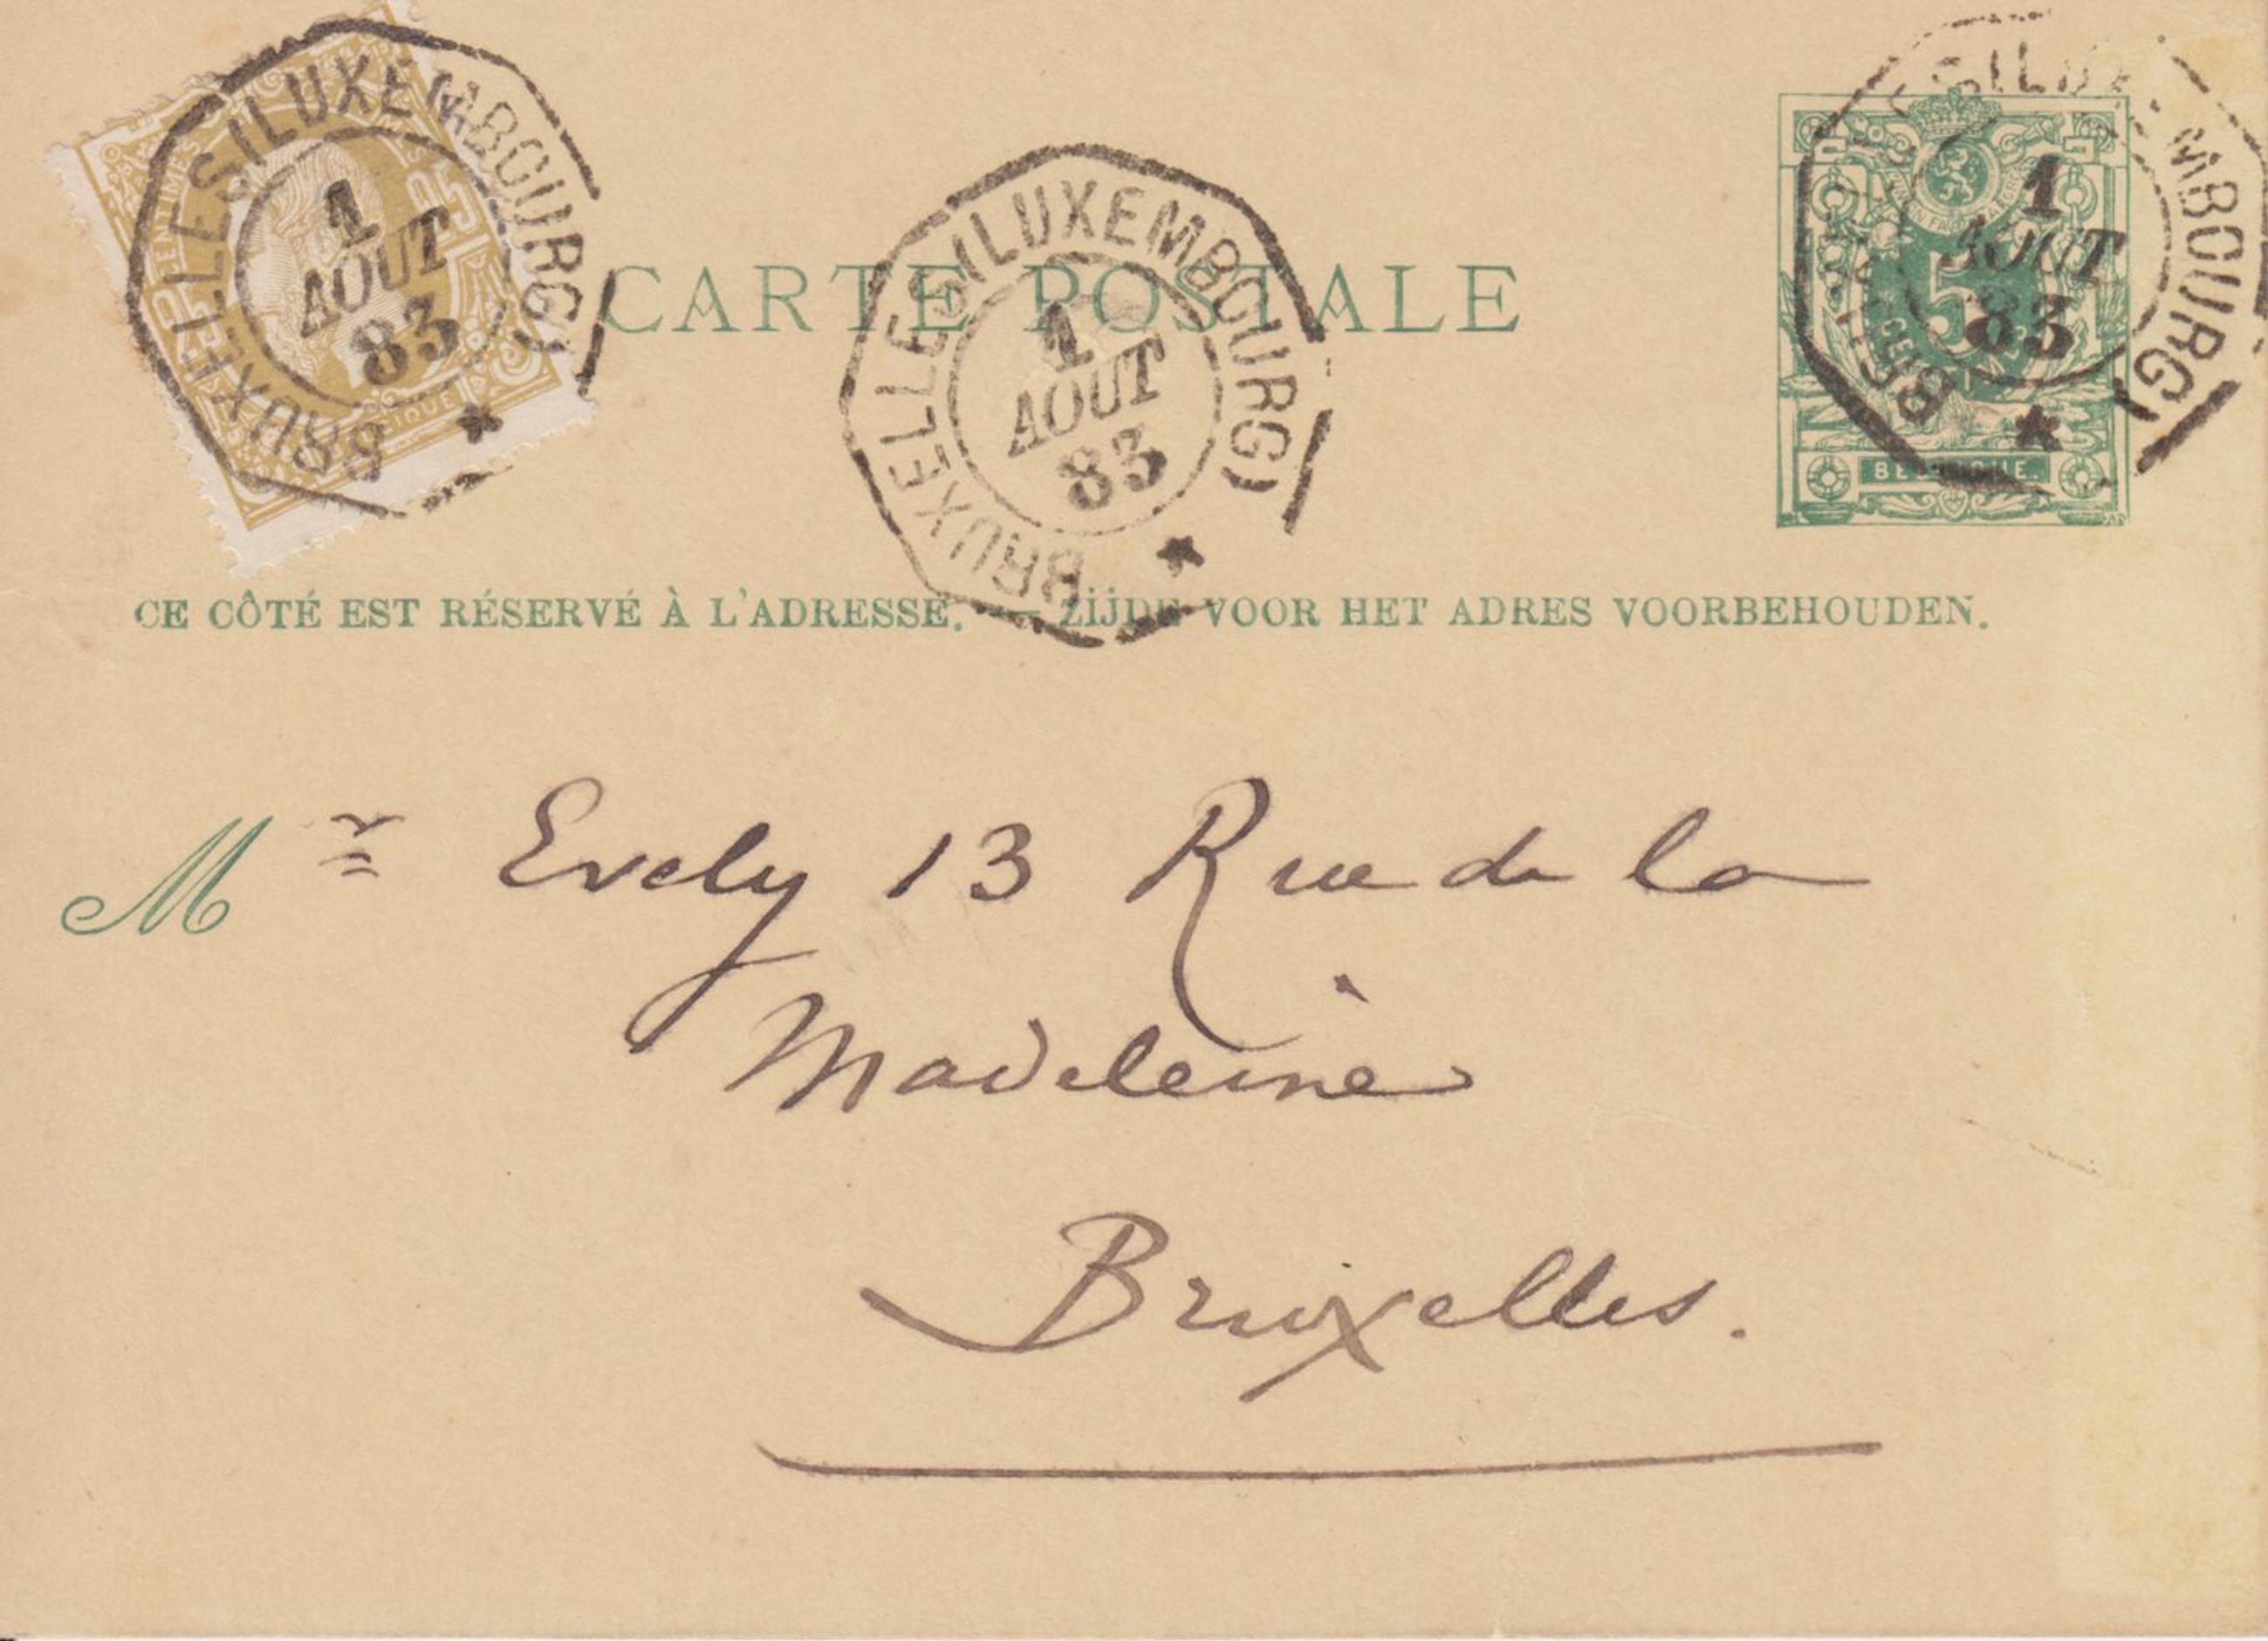 BRUXELLES (LUXEMBOURG)
1
AOUT
83
25
BRUXELLES (LUXEMBOURG)
1
AOUT
83
BRUXELLES (LUXEMBOURG)
1
AOUT
83
5
BELGIQUE
CARTE POSTALE
CE CÔTÉ EST RÉSERVÉ À L'ADRESSE. — ZIJDE VOOR HET ADRES VOORBEHOUDEN.
Mr Evely 13 Rue de la
Madeleine
Bruxelles.